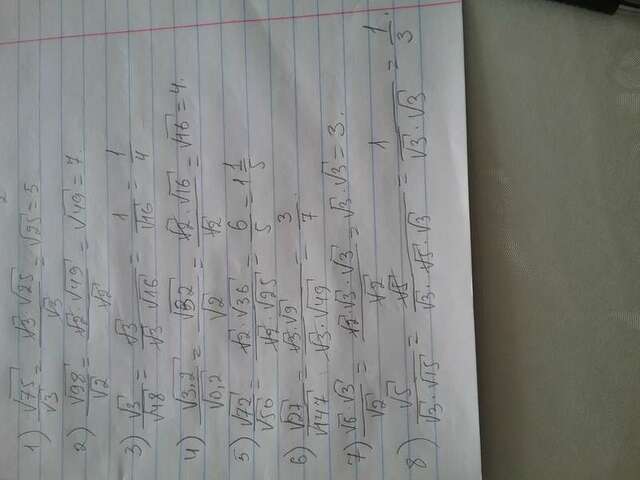 1) √75/√3 = √3·√25/√3 = √25 = 5
2) √98/√2 = √2·√49/√2 = √49 = 7.
3) √3/√48 = √3/√3·√16 = 1/√16 = 1/4
4) √3,2/√0,2 = √32/√2 = √2·√16/√2 = √16 = 4.
5) √72/√50 = √2·√36/√2·√25 = 6/5 = 1 1/5
6) √27/√147 = √3·√9/√3·√49 = 3/7.
7) √6·√3/√2 = √2·√3·√3/√2 = √3·√3 = 3.
8) √5/√3·√15 = √5/√3·√5·√3 = 1/√3·√3 = 1/3.